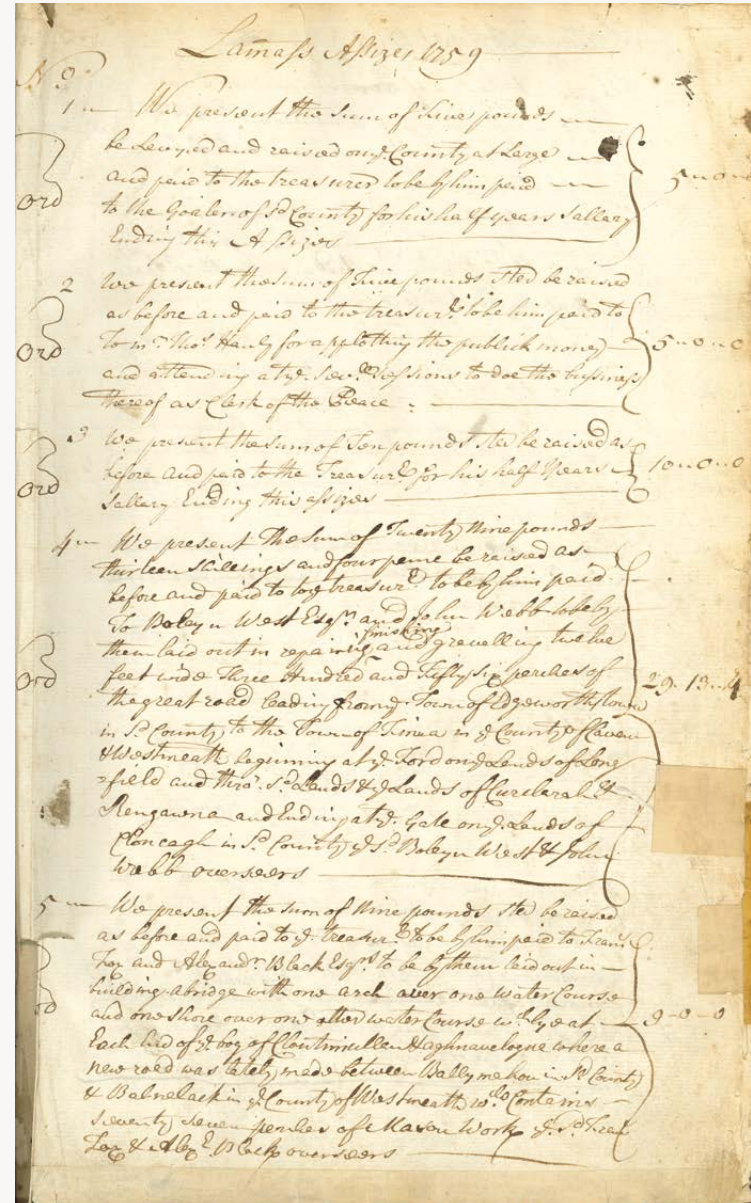 Lam̃ass Assizes 1759
No.
1 We present the Sum of Five pounds
be Levyed and raised on ye. County at Large
and paid to the treasurer to be by him paid
to the Goaler of sd County for his half years Sallery
Ending this Assizes
5-0-0
Ord
2 We present the sum of Five pounds ster be raised
as before and paid to the treasurr. to be him paid to
To mr. Thos. Hanly for applotting the publick money
and attending at ye. Sevll. Sessions to doe the bussiness
thereof as Clerk of the Peace
5-0-0
Ord
3 We present the sum of Ten pounds ster be raised as
before and paid to the Treasurr. for his half Years
Sallery Ending this assizes
10-0-0
Ord
4 We present the Sum of Twenty Nine pounds
thirteen shillings and four pence be raised as
before and paid to treasurr. to be by him paid
To Boleyn West Esqr. and John Webb to be by
finishing
them laid out in repairing and gravelling twelve
feet wide Three Hundred and Fifty six perches of
the great road leading from ye. Town of Edgeworthstown
in sd. County to the Town of Finea in ye County of Cavan
& Westmeath beginning at ye. Ford on ye Lands of Long
=field and thro'. sd. Lands & ye Lands of &
and Ending at ye. Gate on ye. Lands of
Cloncagh in sd. County ye sd. Boleyn West & John
Webb overseers
29-13-4
Ord
5 We present the sum of Nine pounds ster be raised
as before and paid to ye. treasurr. to be by him paid to Frans.
Fox and Alexandr. Black Esqrs. to be by them laid out in
building a bridge with one arch over one water Course
and one shore over one other water Course wch. lye at
Each End of ye. bog of where a
new road was lately made between Ballymahon in sd. County
& in ye County of Westmeath wch. Contains
seventy seven perches of Mason Work ye. sd. Fran
Fox & Alexr. Black overseers
9-0-0